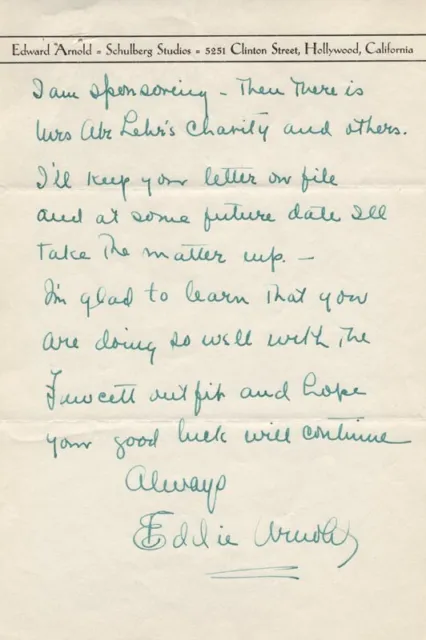 Edward Arnold = Schulberg Studios = 5251 Clinton Street, Hollywood, California
I am sponsoring - Then there is
Mrs Abe Lehr's Charity and others.
I'll keep your letter on file
and at some future date I'll
take the matter up. -
I'm glad to learn that you
are doing so well with the
Fawcett outfit and hope
your good luck will continue
Always
Eddie Arnold